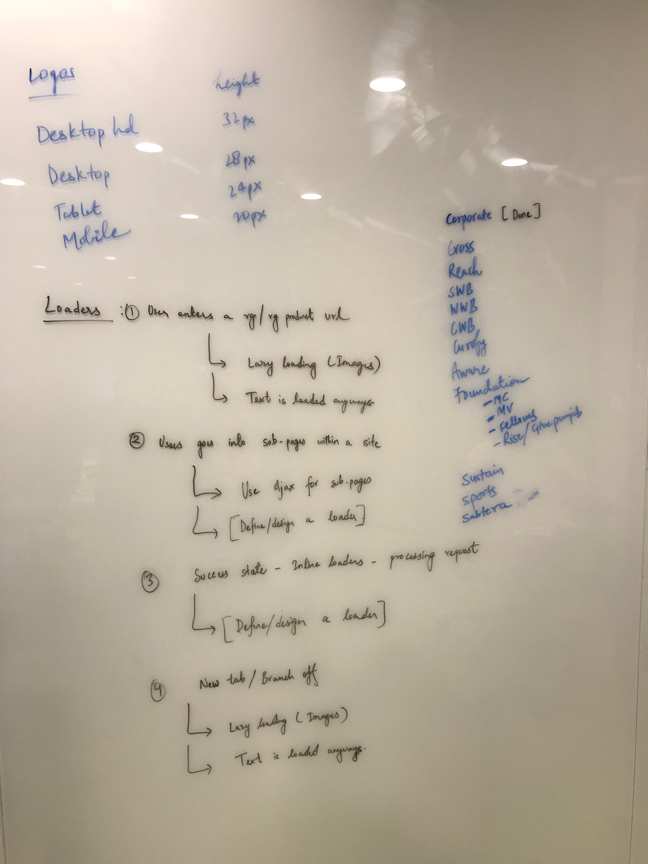 Logos height
Desktop hd 32px
Desktop 28px
Tablet 24px
Mobile 20px
Corporate [Done]
Cross
Reach
SWB
WWB
CWB
Aware
Foundation
- MC
- MV
- Fellows
- Rise/
Sustain
sports
Loaders : ① User enters a rg/rg product url
Lazy loading (Images)
Text is loaded anyways.
② Users goes into sub-pages within a site
Use Ajax for sub-pages
[Define/design a loader]
③ Success state - Inline loaders - processing request
[Define/design a loader]
④ New tab/Branch off
Lazy loading (Images)
Text is loaded anyways.